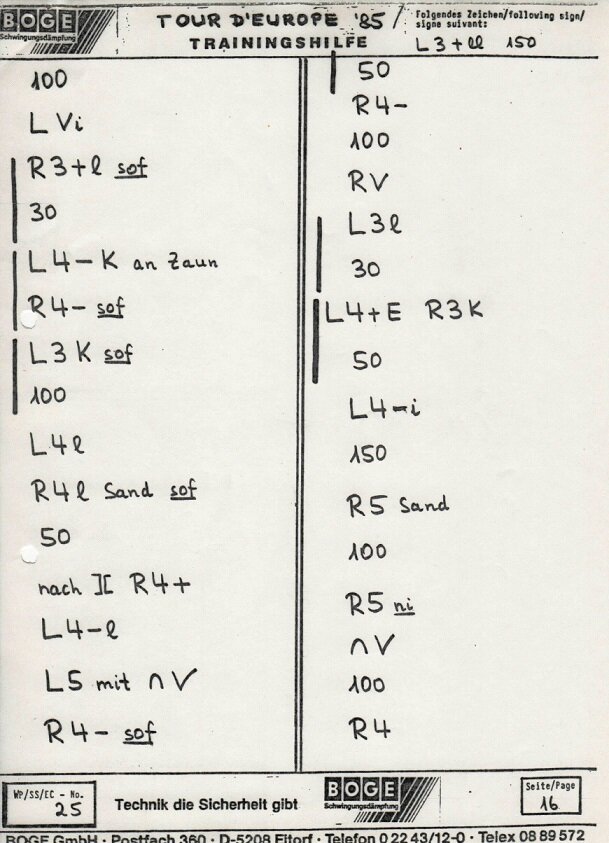 BOGE
Schwingungsdämpfung
TOUR D'EUROPE '85 /
TRAININGSHILFE
Folgendes Zeichen/following sign/
signe suivant:
L3+ll 150
100
L Vi
R3+l sof
30
L4-K an Zaun
R4- sof
L3 K sof
100
L4l
R4l Sand sof
50
nach ][ R4+
L4-l
L5 mit ∩ V
R4- sof
50
R4-
100
RV
L3l
30
L4+E R3K
50
L4-i
150
R5 Sand
100
R5 ni
∩ V
100
R4
WP/SS/EC - No.
25
Technik die Sicherheit gibt
BOGE
Schwingungsdämpfung
Seite/Page
16
BOGE GmbH · Postfach 360 · D-5208 Eitorf · Telefon 0 22 43/12-0 · Telex 08 89 572